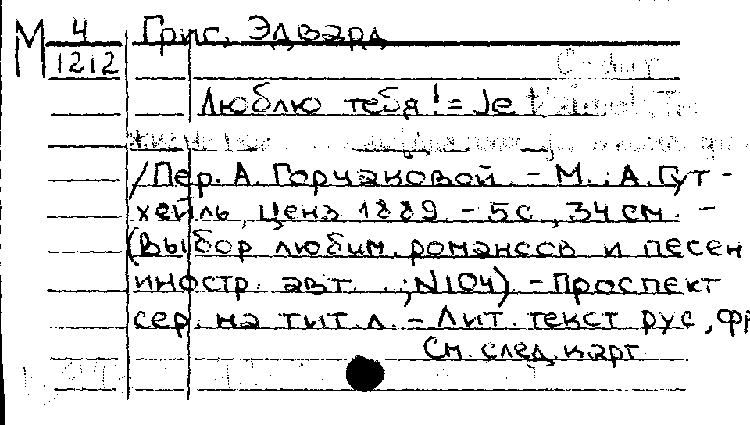 М 4 Григ, Эдвард
1212
Люблю тебя! = Je
/Пер. А. Горчаковой. - М.: А. Гут-
хейль, ценз 1889 - 5с, 34 см. -
(Выбор любим. романсов и песен
иностр. авт. ; N104) - Проспект
сер. на тит. л. - Лит. текст рус, фр
См. след. карт